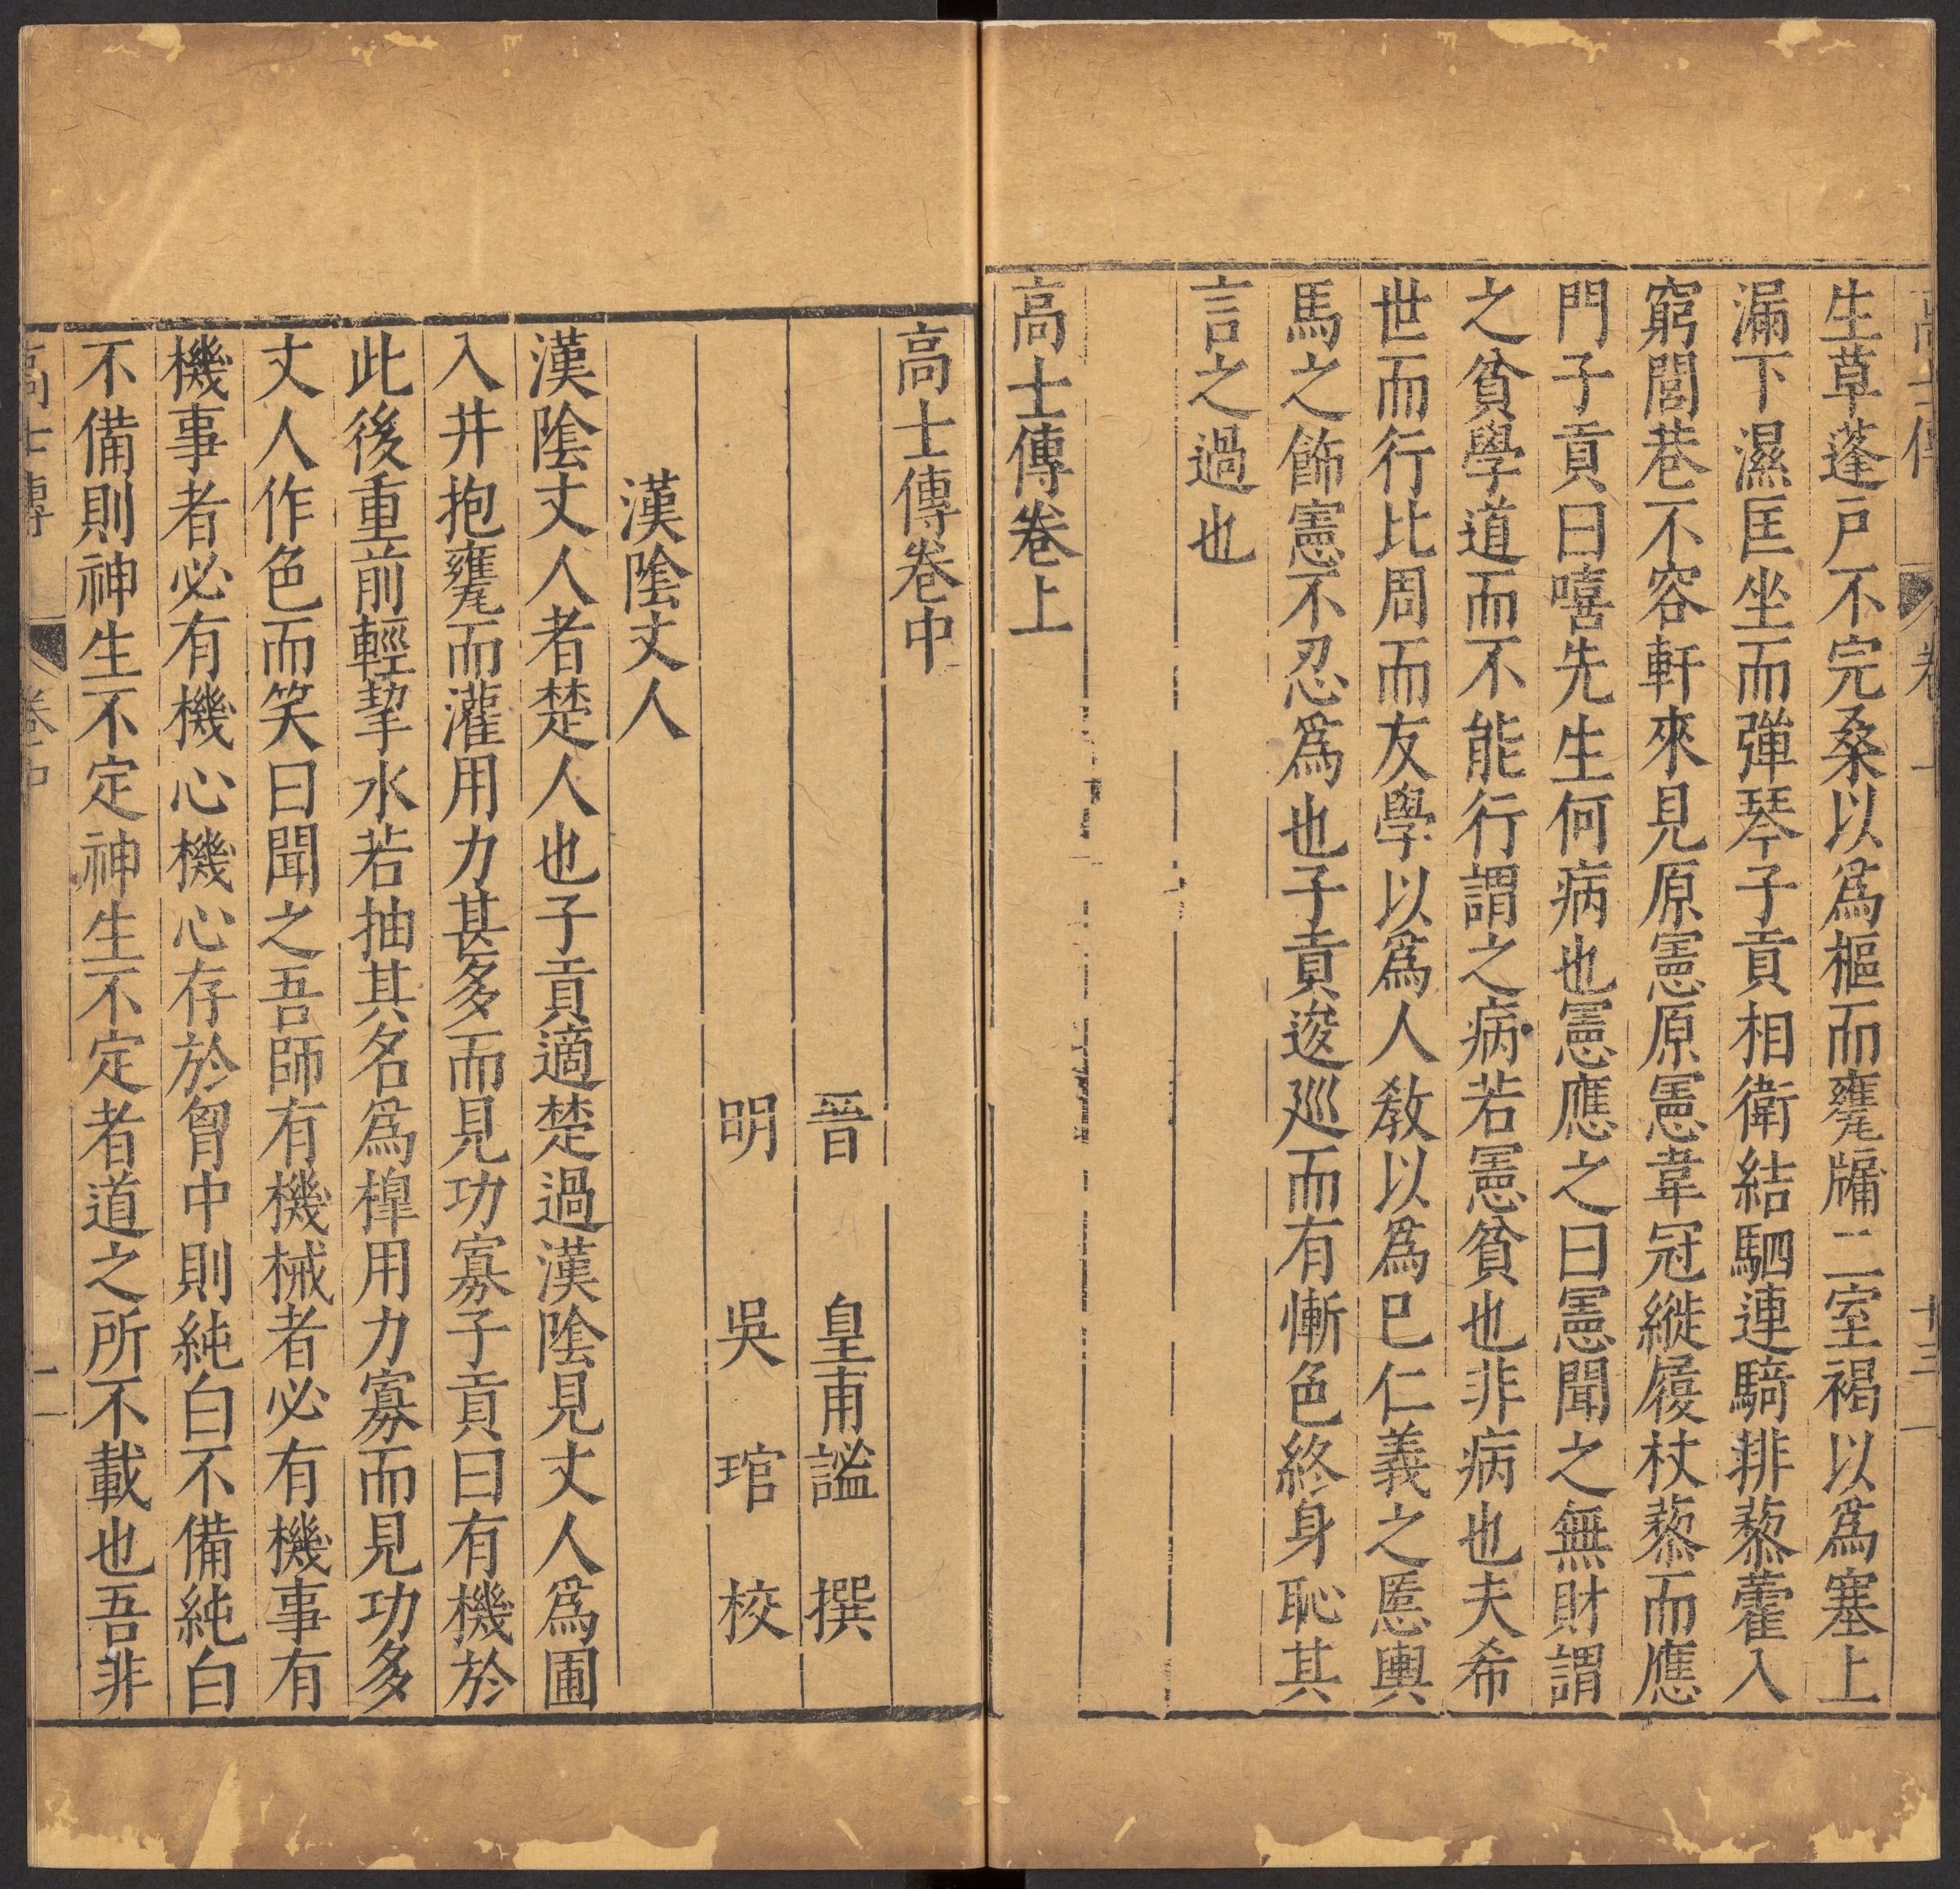 高士傳 卷上 十三
生草蓬戸不完桑以爲樞而甕牖二室褐以爲塞上
漏下濕匡坐而彈琴子貢相衛結駟連騎排藜藿入
窮閻巷不容軒來見原憲原憲韋冠縰履杖藜而應
門子貢曰嘻先生何病也憲應之曰憲聞之無財謂
之貧學道而不能行謂之病若憲貧也非病也夫希
世而行比周而友學以爲人教以爲己仁義之慝輿
馬之飾憲不忍爲也子貢逡巡而有慚色終身恥其
言之過也
高士傳卷上
高士傳卷中
晉 皇甫謐 撰
明 吳琯 校
漢陰丈人
漢陰丈人者楚人也子貢適楚過漢陰見丈人爲圃
入井抱甕而灌用力甚多而見功寡子貢曰有機於
此後重前輕挈水若抽其名爲槹用力寡而見功多
丈人作色而笑曰聞之吾師有機械者必有機事有
機事者必有機心機心存於胷中則純白不備純白
不備則神生不定神生不定者道之所不載也吾非
高士傳 卷中 一